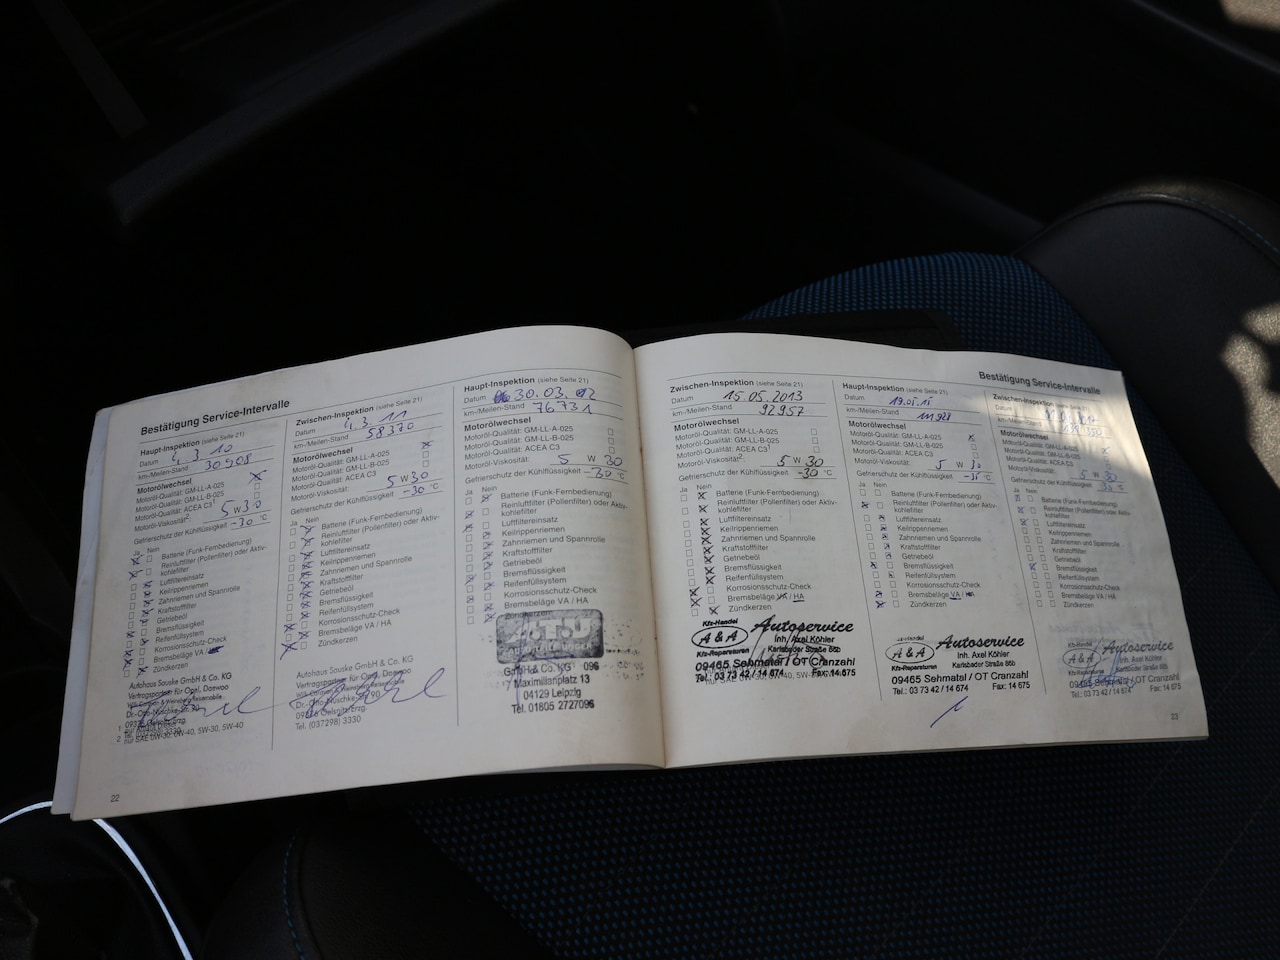 Bestätigung Service-Intervalle
Haupt-Inspektion (siehe Seite 21)
Datum 4. 3. 10
km-/Meilen-Stand 30908
Motorölwechsel
Motoröl-Qualität: GM-LL-A-025
Motoröl-Qualität: GM-LL-B-025
Motoröl-Qualität: ACEA C3
Motoröl-Viskosität²: 5 W 30
Gefrierschutz der Kühlflüssigkeit -30 °C
Ja Nein
Batterie (Funk-Fernbedienung)
Reinluftfilter (Pollenfilter) oder Aktiv-
kohlefilter
Luftfiltereinsatz
Keilrippenriemen
Zahnriemen und Spannrolle
Kraftstofffilter
Getriebeöl
Bremsflüssigkeit
Reifenfüllsystem
Korrosionsschutz-Check
Bremsbeläge VA
Zündkerzen
Autohaus Sauske GmbH & Co. KG
Vertragspartner für Opel, Daewoo
Zwischen-Inspektion (siehe Seite 21)
Datum 4. 3. 11
km-/Meilen-Stand 58370
Motorölwechsel
Motoröl-Qualität: GM-LL-A-025
Motoröl-Qualität: GM-LL-B-025
Motoröl-Qualität: ACEA C3
Motoröl-Viskosität: 5 W 30
Gefrierschutz der Kühlflüssigkeit -30 °C
Ja Nein
Batterie (Funk-Fernbedienung)
Reinluftfilter (Pollenfilter) oder Aktiv-
kohlefilter
Luftfiltereinsatz
Keilrippenriemen
Zahnriemen und Spannrolle
Kraftstofffilter
Getriebeöl
Bremsflüssigkeit
Reifenfüllsystem
Korrosionsschutz-Check
Bremsbeläge VA / HA
Zündkerzen
Autohaus Sauske GmbH & Co. KG
Vertragspartner für Opel, Daewoo
Tel. (037298) 3330
Haupt-Inspektion (siehe Seite 21)
Datum 30.03.
km-/Meilen-Stand 76731
Motorölwechsel
Motoröl-Qualität: GM-LL-A-025
Motoröl-Qualität: GM-LL-B-025
Motoröl-Qualität: ACEA C3
Motoröl-Viskosität: 5 W 30
Gefrierschutz der Kühlflüssigkeit -30 °C
Ja Nein
Batterie (Funk-Fernbedienung)
Reinluftfilter (Pollenfilter) oder Aktiv-
kohlefilter
Luftfiltereinsatz
Keilrippenriemen
Zahnriemen und Spannrolle
Kraftstofffilter
Getriebeöl
Bremsflüssigkeit
Reifenfüllsystem
Korrosionsschutz-Check
Bremsbeläge VA / HA
Zündkerzen
A.T.U
GmbH & Co. KG 096
Maximilianplatz 13
04129 Leipzig
Tel. 01805 2727096
22
Bestätigung Service-Intervalle
Zwischen-Inspektion (siehe Seite 21)
Datum 15.05.2013
km-/Meilen-Stand 92957
Motorölwechsel
Motoröl-Qualität: GM-LL-A-025
Motoröl-Qualität: GM-LL-B-025
Motoröl-Qualität: ACEA C3
Motoröl-Viskosität²: 5 W 30
Gefrierschutz der Kühlflüssigkeit -30 °C
Ja Nein
Batterie (Funk-Fernbedienung)
Reinluftfilter (Pollenfilter) oder Aktiv-
kohlefilter
Luftfiltereinsatz
Keilrippenriemen
Zahnriemen und Spannrolle
Kraftstofffilter
Getriebeöl
Bremsflüssigkeit
Reifenfüllsystem
Korrosionsschutz-Check
Bremsbeläge VA / HA
Zündkerzen
Kfz-Handel
A & A
Kfz-Reparaturen
Autoservice
Inh. Axel Köhler
Karlsbader Straße 86b
09465 Sehmatal / OT Cranzahl
Tel.: 03 73 42 / 14 674 Fax: 14 675
Haupt-Inspektion (siehe Seite 21)
Datum 19.05.15
km-/Meilen-Stand 111928
Motorölwechsel
Motoröl-Qualität: GM-LL-A-025
Motoröl-Qualität: GM-LL-B-025
Motoröl-Qualität: ACEA C3
Motoröl-Viskosität: 5 W 30
Gefrierschutz der Kühlflüssigkeit -35 °C
Ja Nein
Batterie (Funk-Fernbedienung)
Reinluftfilter (Pollenfilter) oder Aktiv-
kohlefilter
Luftfiltereinsatz
Keilrippenriemen
Zahnriemen und Spannrolle
Kraftstofffilter
Getriebeöl
Bremsflüssigkeit
Reifenfüllsystem
Korrosionsschutz-Check
Bremsbeläge VA / HA
Zündkerzen
A & A
Kfz-Reparaturen
Autoservice
Inh. Axel Köhler
Karlsbader Straße 86b
09465 Sehmatal / OT Cranzahl
Tel.: 03 73 42 / 14 674 Fax: 14 675
Zwischen-Inspektion (siehe Seite 21)
Datum
km-/Meilen-Stand
Motorölwechsel
Motoröl-Qualität: GM-LL-A-025
Motoröl-Qualität: GM-LL-B-025
Motoröl-Qualität: ACEA C3
Motoröl-Viskosität: 5 W 30
Gefrierschutz der Kühlflüssigkeit
Ja Nein
Batterie (Funk-Fernbedienung)
Reinluftfilter (Pollenfilter) oder Aktiv-
kohlefilter
Luftfiltereinsatz
Keilrippenriemen
Zahnriemen und Spannrolle
Kraftstofffilter
Getriebeöl
Bremsflüssigkeit
Reifenfüllsystem
Korrosionsschutz-Check
Bremsbeläge VA / HA
Zündkerzen
Kfz-Handel
A & A
Autoservice
Inh. Axel Köhler
Karlsbader Straße 86b
09465 Sehmatal / OT Cranzahl
Tel.: 03 73 42 / 14 674 Fax: 14 675
23